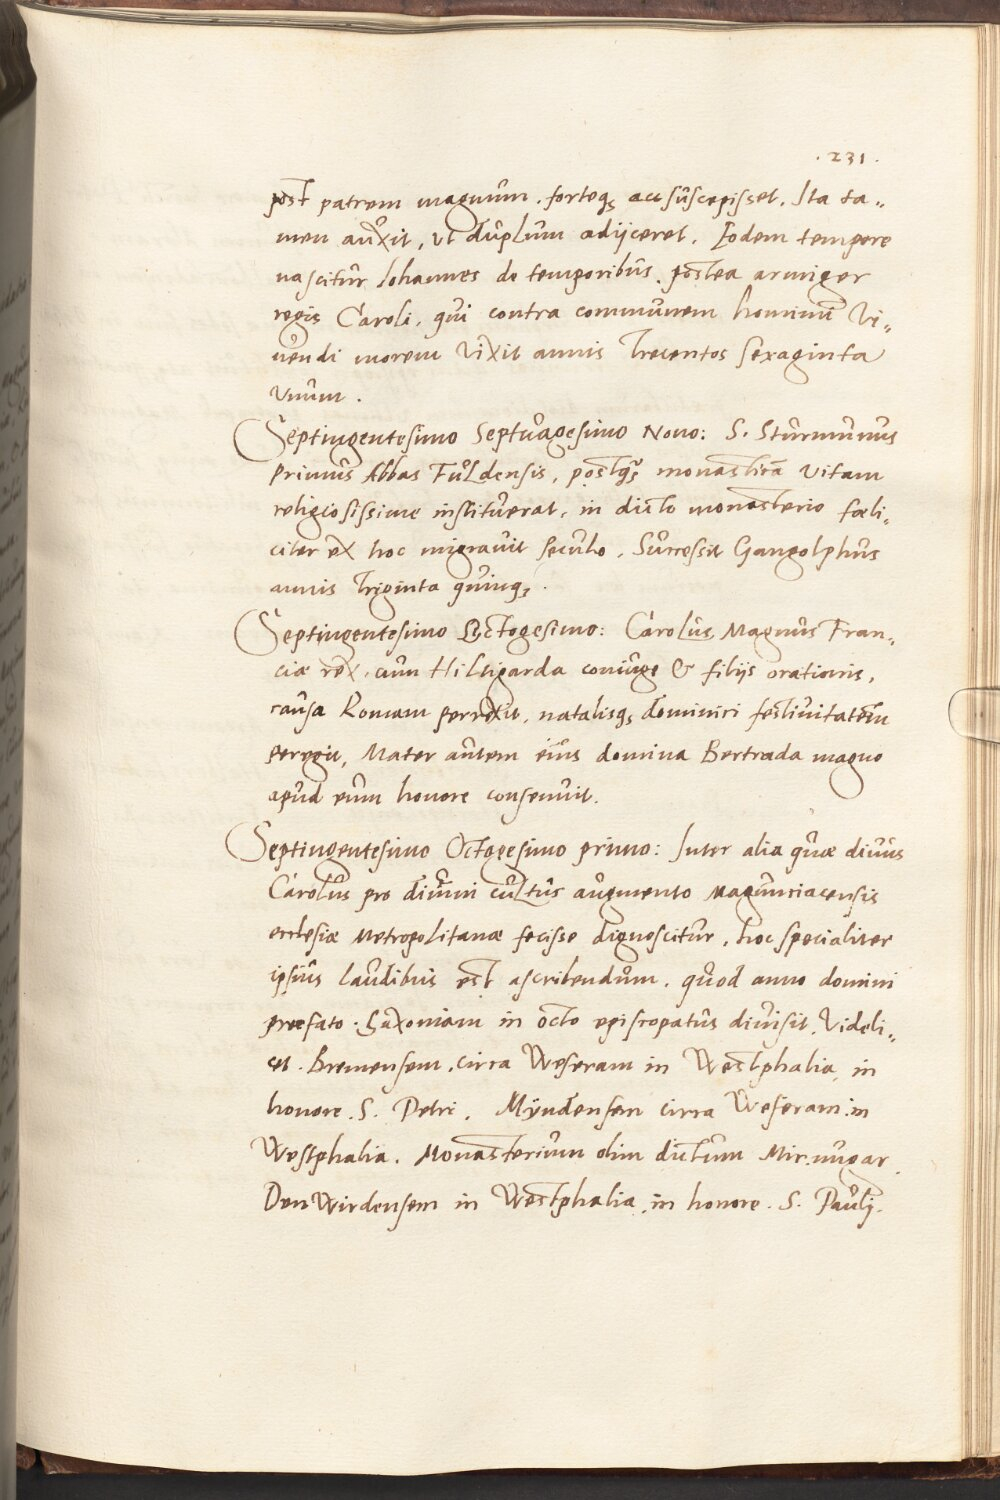 . 231 .
post patrem magnum . forteq3 acc suscepisset . Ita ta„
men auxit, ut duplum adijceret . Eodem tempore
nascitur Iohannes de temporibus . postea armiger
regis Caroli , qui contra communem hominū vi„
vendi morem vixit annis Trecentos sexaginta
vnum .
Septingentesimo Septuagesimo Nono: S. Sturmunus
Primus Abbas Fuldensis , postq3 monasticā vitam
religiosissime instituerat , in dicto monasterio fœli„
citer ex hoc migravit seculo . Successit Gangolphus
annis Triginta quinq3 .
Septingentesimo Octogesimo: Carolus Magnus Fran„
ciæ rex , cum Hiltigarda coniuge & filijs orationis ,
causa Romam perrexit , natalisq3 dominici festiuitatem
peregit, Mater autem eius domina Bertrada magno
apud eum honore consenuit .
Septingentesimo Octogesimo primo: Inter alia quæ diuus
Carolus pro diuini cultus augmento Magunciacensis
ecclesiæ Metropolitanæ fecisse dignoscitur , hoc specialiter
ipsius laudibus est ascribendum . quod anno domini
præfato . Saxoniam in octo episcopatus diuisit . Videli„
cet . Bremensem . circa Weseram in Westphalia in
honore . S. Petri . Myndensem circa Weseram in
Westphalia . Monasterium olim dictum Mirmigar
Den Wirdensem in Westphalia in honore . S. Paulj .